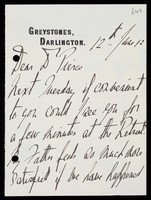 GREYSTONES,
DARLINGTON.
12th Jan 12
Dear Dr Pierce
Next Tuesday if convenient
to you could I see you for
a few minutes at the Retreat.
My Father feels so much more
satisfied if we have happened